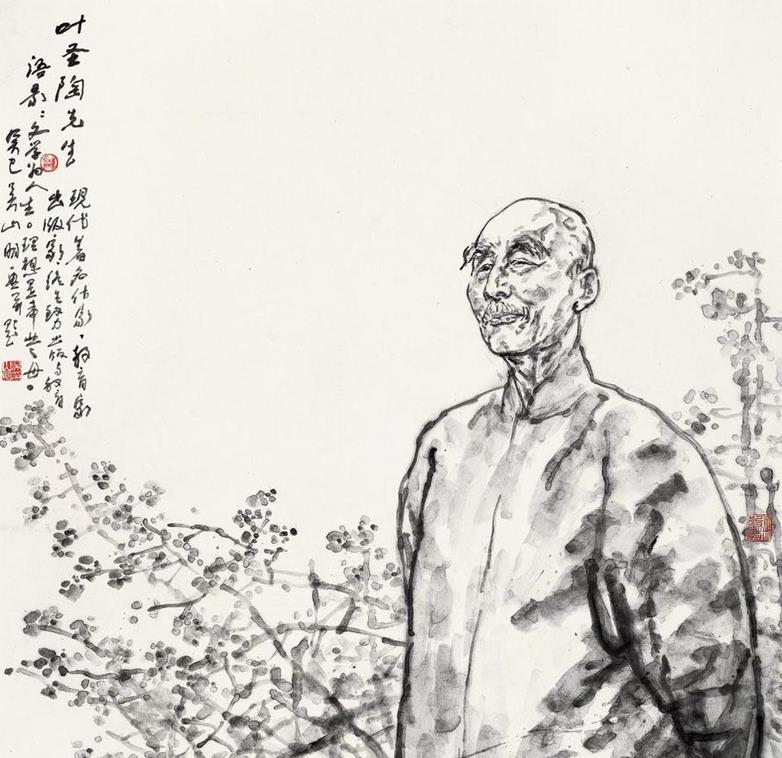 叶圣陶先生
现代著名作家、教育家
出版家终生致力出版与教育
语录:文学为人生。理想是事业之母。
癸巳 山明画并题